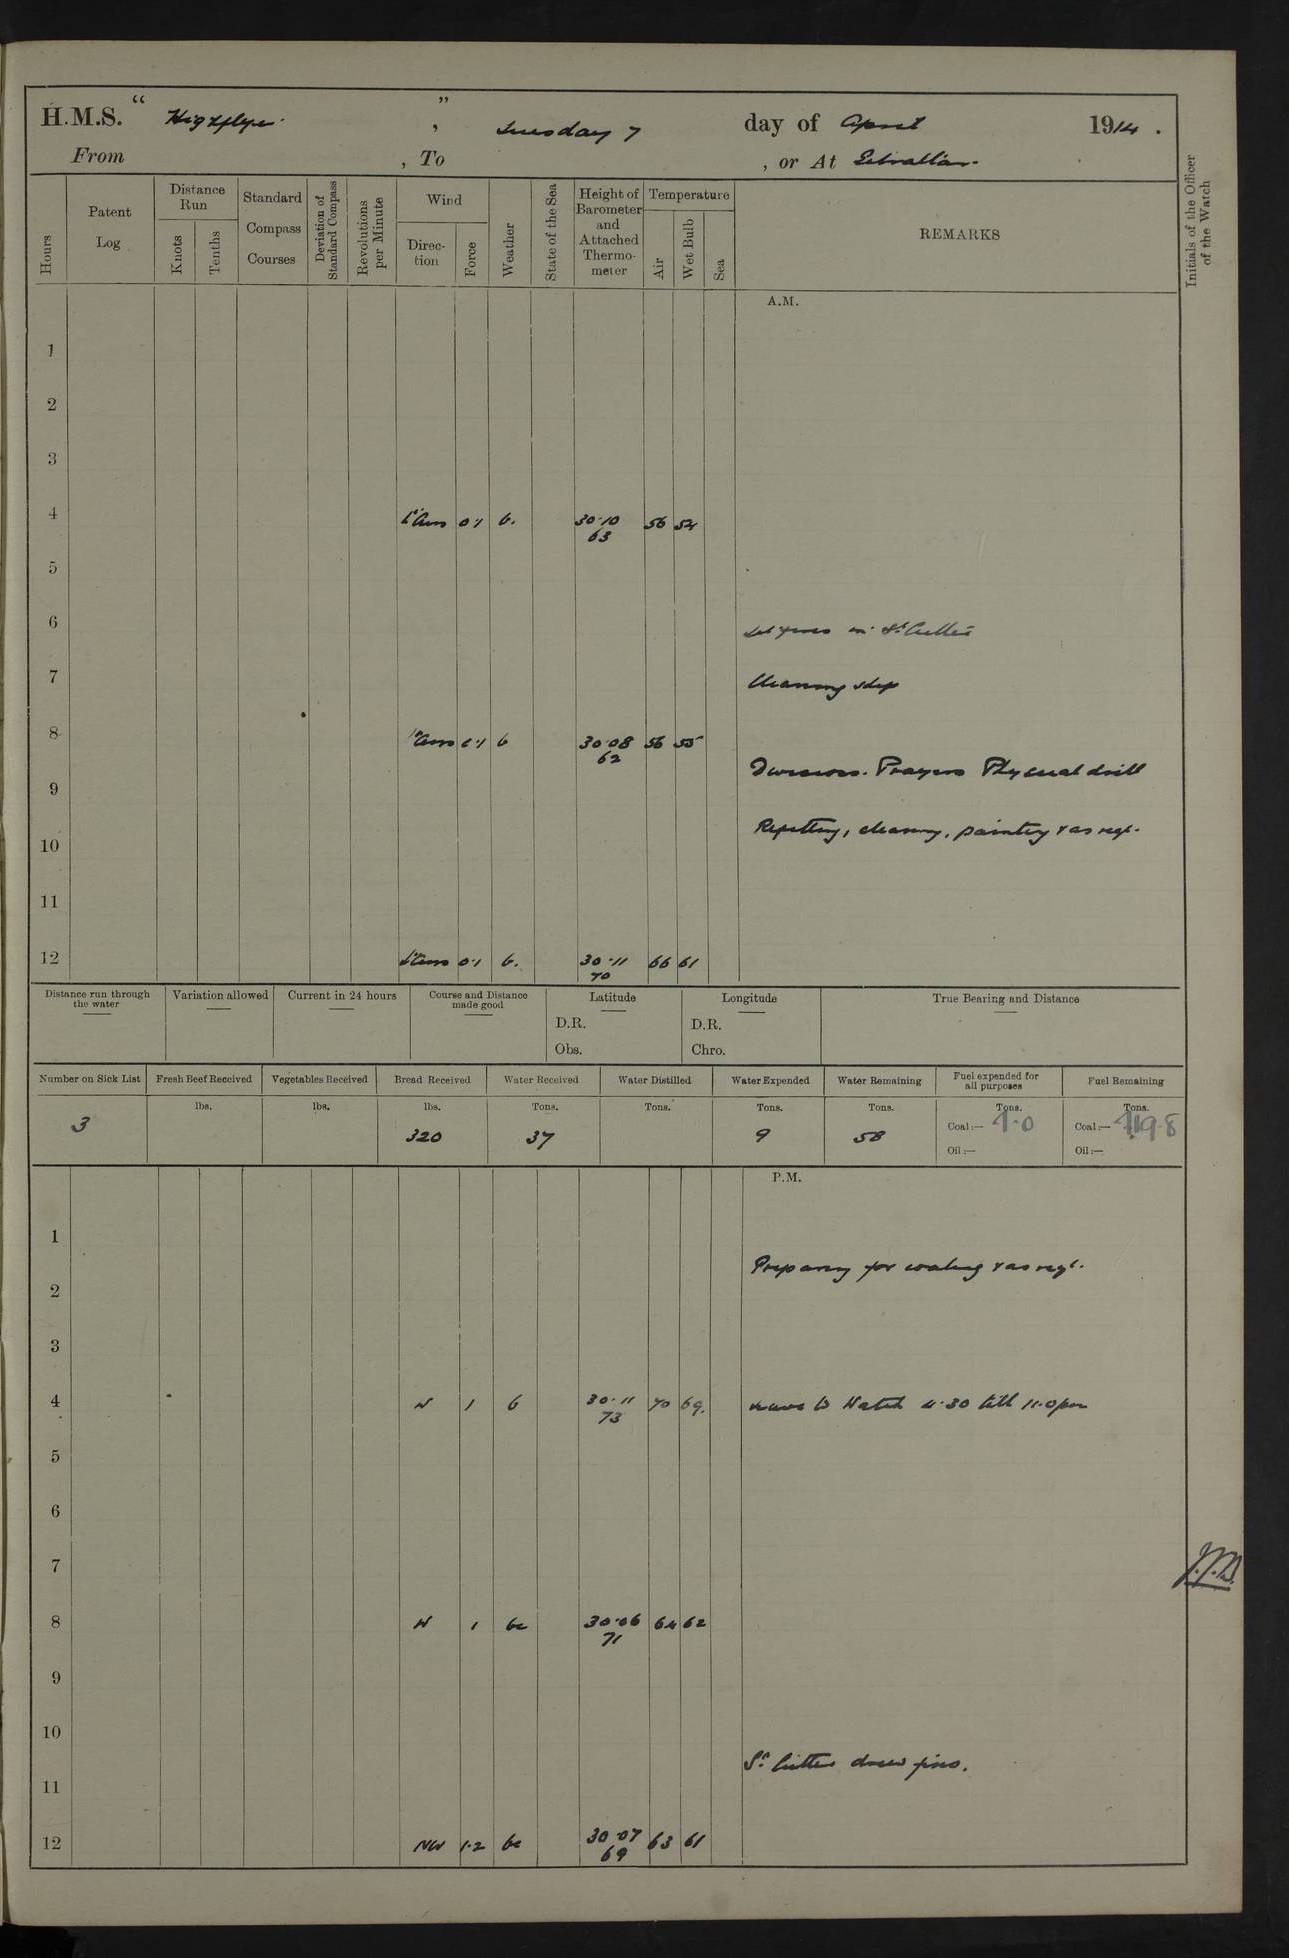 H.M.S. " Highflyer ", Tuesday 7 day of April 1914.
From , To , or At Gibraltar.
Hours
Patent Log
Distance Run
Knots
Tenths
Standard Compass Courses
Deviation of Standard Compass
Revolutions per Minute
Wind
Direc-tion
Force
Weather
State of the Sea
Height of Barometer and Attached Thermo-meter
Temperature
Air
Wet Bulb
Sea
REMARKS
Initials of the Officer of the Watch
A.M.
1
2
3
4 Lt Airs 0.1 b. 30.10 56 54
63
5
6 Lit fires in St. Cutter
7 Cleaning ship
8 Lt Airs 0.1 b 30.08 56 55
62
Divisions. Prayers Physical drill
9
Refitting, cleaning, painting & as reqt.
10
11
12 Lt Airs 0.1 b. 30.11 66 61
70
Distance run through the water
Variation allowed
Current in 24 hours
Course and Distance made good
Latitude
D.R.
Obs.
Longitude
D.R.
Chro.
True Bearing and Distance
Number on Sick List
Fresh Beef Received
Vegetables Received
Bread Received
Water Received
Water Distilled
Water Expended
Water Remaining
Fuel expended for all purposes
Fuel Remaining
lbs. lbs. lbs. Tons. Tons. Tons. Tons. Tons. Tons.
3 320 37 9 58 Coal:— Coal:—
Oil:— Oil:—
P.M.
1
Preparing for coaling & as reqt.
2
3
4 W 1 b 30.11 70 69. Leave to Watch 4.30 till 11.0 pm
73
5
6
7
8 W 1 bc 30.06 64 62
71
9
10
St. Cutter drew fires.
11
12 NW 1.2 bc 30.07 63 61
69